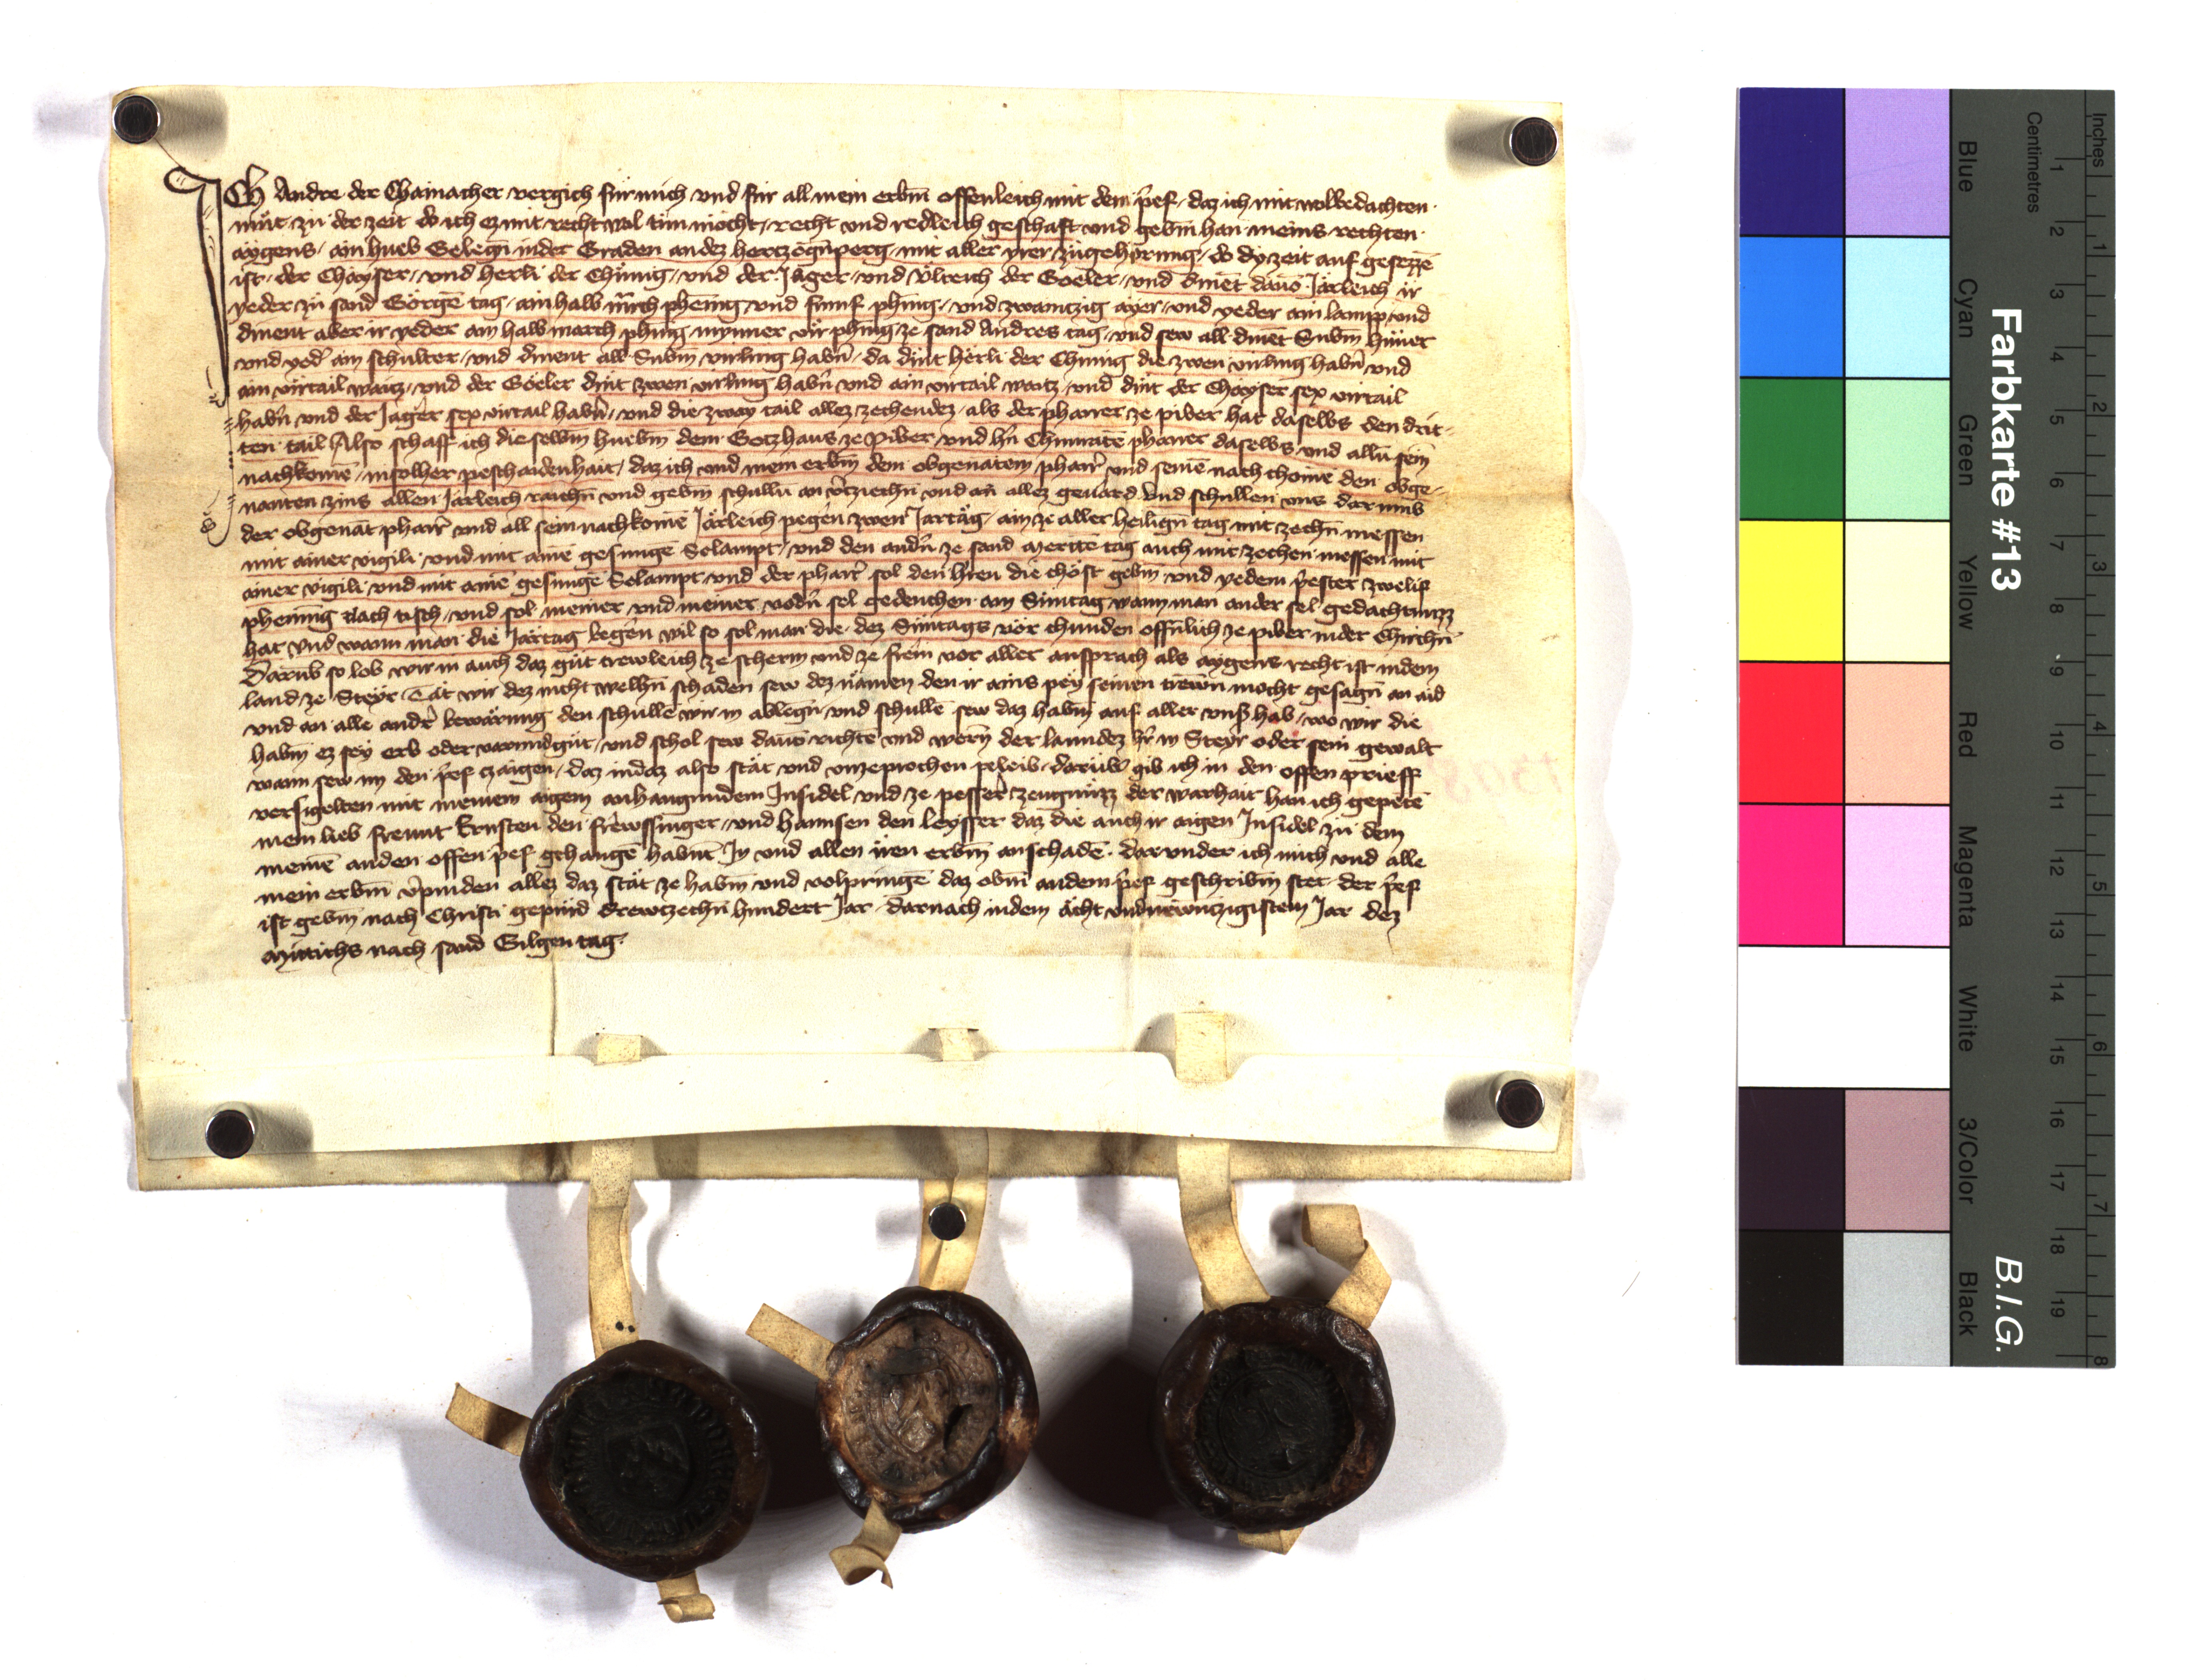 ICH Andre der Chainacher vergich für mich vnd für all mein erbm̄ offenleich mit dem p̄ef daz ich mit wolbedachten
müt zü der zeit do ich ez mit recht wol tün mocht recht vnd redleich geschaft vnd gebm̄ han meins rechten
aygens ain hueb Gelegn̄ inder Graden an dez hertzogn̄perg mit aller yrer zügehörung do dy zeit auf gesezzē
ist der Chayser vnd herli der Chünig vnd der Jäger vnd Vlreich der Goeler vnd dinēt dauō Järleich ir
yeder zü sand Görgē tag ain halb mrch phenīg vnd fumf phing vnd zwaintzig ayer vnd yeder ain lamp vnd
dinent aber ir yeder ain halb march phing mynner vir phing ze sand Andres tag vnd sew all dinēt Subm̄ hüner
vnd yed ain schulter vnd dinent all Subm̄ virling habn̄ da dint herli der Chunig die zwen virling habn̄ vnd
ain virtail waitz vnd der Göeler dint zwen virling habn̄ vnd ain virtail waitz vnd dint der Chayser sex virtail
habn̄ vnd der Jager sex virtail habn̄ vnd die zway tail allez zechendez als der pharrer ze piber hat daselbs den drit-
ten tail Also schaff ich die selbm̄ huebm̄ dem Gotzhaus ze Piber vnd hn̄ Chunratē pharrer daselbs vnd alln̄ sein
nachkomē in solher peschaidenhait daz ich vnd mein erbm̄ dem obgenātem pharr̄ vnd seinē nach chomē den obge-
nanten zins allen Järleich raichn̄ vnd gebm̄ schulln̄ an v̄tziechn̄ vnd an allez geuärd vnd schullen vns dar vmb
der obgenāt pharr̄ vnd all sein nachkomē Järleich pegen zwen Jartäg ain ze aller heilign̄ tag mit zechn̄ messen
mit ainer vigili vnd mit ainē gesungē Selampt vnd den andn̄ ze sand Mertē tag auch mit zechen messen mit
ainer vigili vnd mit ainē gesungē Selampt vnd der pharr̄ sol den hren die chöst gebm̄ vnd yedem p̄ester zwelif
phening nach tisch vnd sol meiner vnd meiner vodn̄ sel gedenchen am Suntag wann man ander sel gedächtnuzz
hat vnd wann man die Jartag begen wil so sol man die dez Suntags vör chunden offnlich ze piber inder Chirchn̄
Darūb so lob wir in auch daz güt trewleich ze scherm vnd ze freīn vor aller ansprach als aygens recht ist indem
land ze Steyr Tät wir dez nicht welhn̄ schaden sew dez nämen den ir ains pey seinen trewn̄ mocht gesagn̄ an aid
vnd an alle andr̄ bewärung den schullē wir in ablegn̄ vnd schullē sew daz habm̄ auf aller vnsr hab wo wir die
habm̄ ez sey erb oder varundgüt vnd schol sew dauō richtē vnd wern̄ der lanndez hr̄ in Steyr oder sein gewalt
wann sew im den p̄ef zaigen daz in daz also stät vnd vnzeprochen peleib darūb gib ich in den offen prieff
versigelten mit meinem aigem anhangundem Insidel vnd ze pesser zeugnüzz der warhait han ich gepetē
mein lieb freunt Ernsten den frewssinger vnd hannsen den leysser daz die auch ir aigen Insidel zü dem
meinē anden offen p̄ef gehangē habnt In vnd allen iren erbm̄ an schadē dar vnder ich mich vnd alle
mein erbm̄ v̄pinden allez daz stät ze habm̄ vnd volpringē daz obm̄ an dem p̄ef geschribm̄ stet der p̄ef
ist gebm̄ nach Christi gepürd drewtzechn̄ hundert Jar darnach indem ächt vndnewntzigistem Jar dez
Mittichs nach sand Gilgen tag
1398
Farbkarte #13
B.I.G.
Inches
1 2 3 4 5 6 7 8
Centimetres
1 2 3 4 5 6 7 8 9 10 11 12 13 14 15 16 17 18 19
Blue
Cyan
Green
Yellow
Red
Magenta
White
3/Color
Black